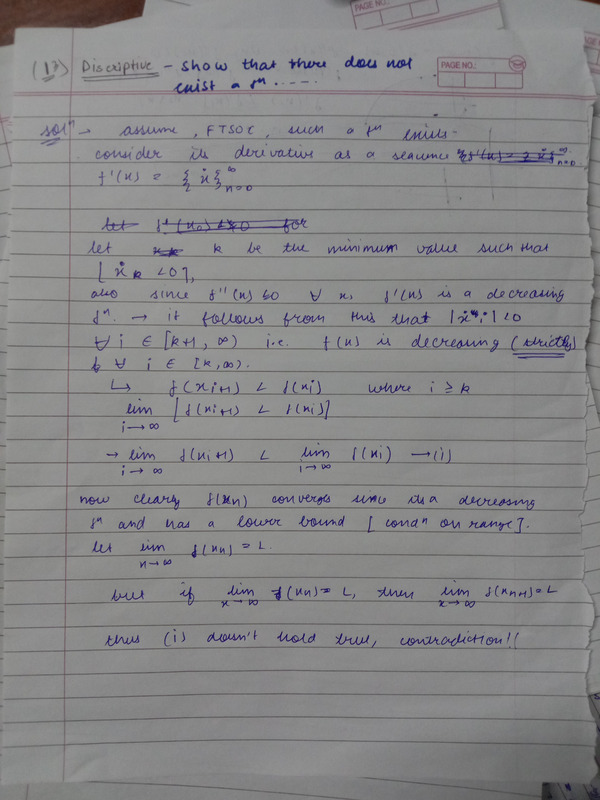 (17) Discriptive - show that there does not
exist a fⁿ ......
PAGE NO.:
solⁿ → assume, FTSOC, such a fⁿ exists.
consider its derivative as a sequence
f'(x) = {ẋ}∞n=0
let k be the minimum value such that
[ẋk <0],
also since f''(x) <0 ∀ x, f'(x) is a decreasing
fⁿ. → it follows from this that |ẋi| <0
∀ i ∈ [k+1, ∞) i.e. f(x) is decreasing (strictly)
∀ i ∈ [k,∞).
↳ f(xi+1) < f(xi) where i ≥ k
lim i→∞ [f(xi+1) < f(xi)]
→ lim i→∞ f(xi+1) < lim i→∞ f(xi) →(i)
now clearly f(xn) converges since its a decreasing
fⁿ and has a lower bound [condⁿ on range].
let lim n→∞ f(xn) = L.
but if lim x→∞ f(xn) = L, then lim x→∞ f(xn+1) = L
thus (i) doesn't hold true, contradiction!!